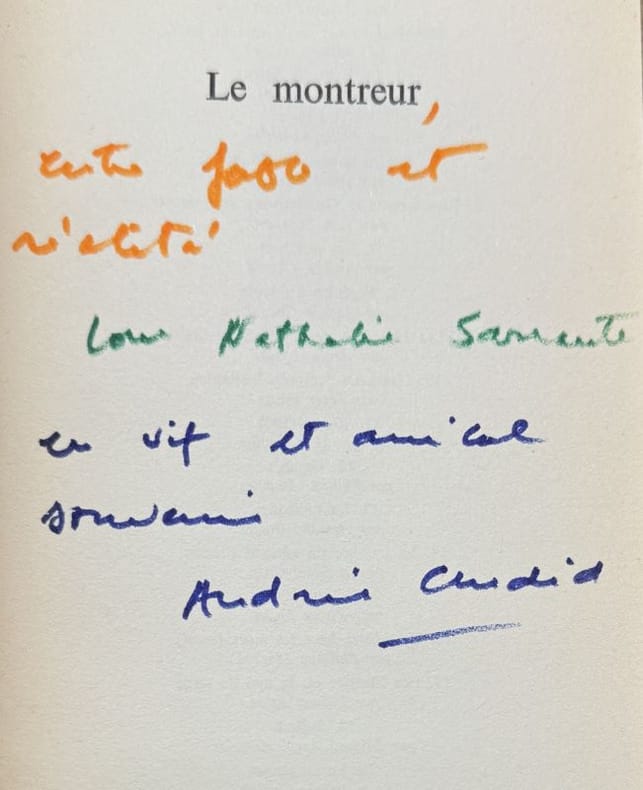 Le montreur,
entre et
réalité
pour Nathalie Sarraute
en vif et amical
souvenir
Andrée Chedid